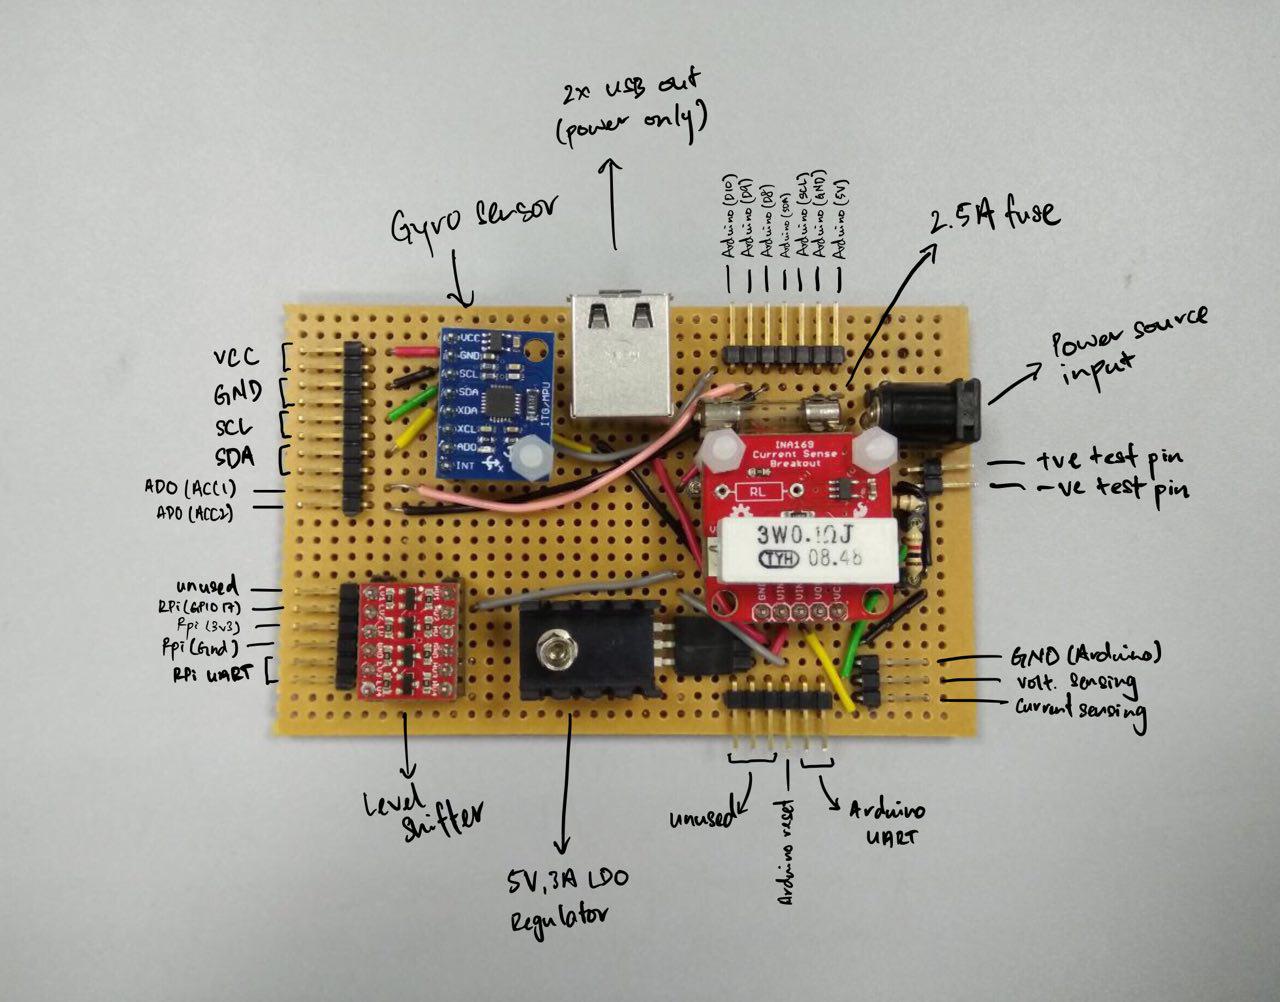 2x USB out
(power only)
Gyro sensor
Arduino (D10)
Arduino (D9)
Arduino (D8)
Arduino (SDA)
Arduino (SCL)
Arduino (GND)
Arduino (5V)
2.5A fuse
Power source
input
+ve test pin
-ve test pin
VCC
GND
SCL
SDA
AD0 (ACC1)
AD0 (ACC2)
VCC
GND
SCL
SDA
XDA
XCL
AD0
INT
ITG/MPU
INA169
Current Sense
Breakout
RL
3W0.1ΩJ
TYH 08.48
GND
VIN
VIN
unused
RPi (GPIO 17)
Rpi (3v3)
Rpi (Gnd)
RPi UART
GND (Arduino)
Volt. sensing
Current sensing
Level
Shifter
5V, 3A LDO
Regulator
unused
Arduino reset
Arduino
UART